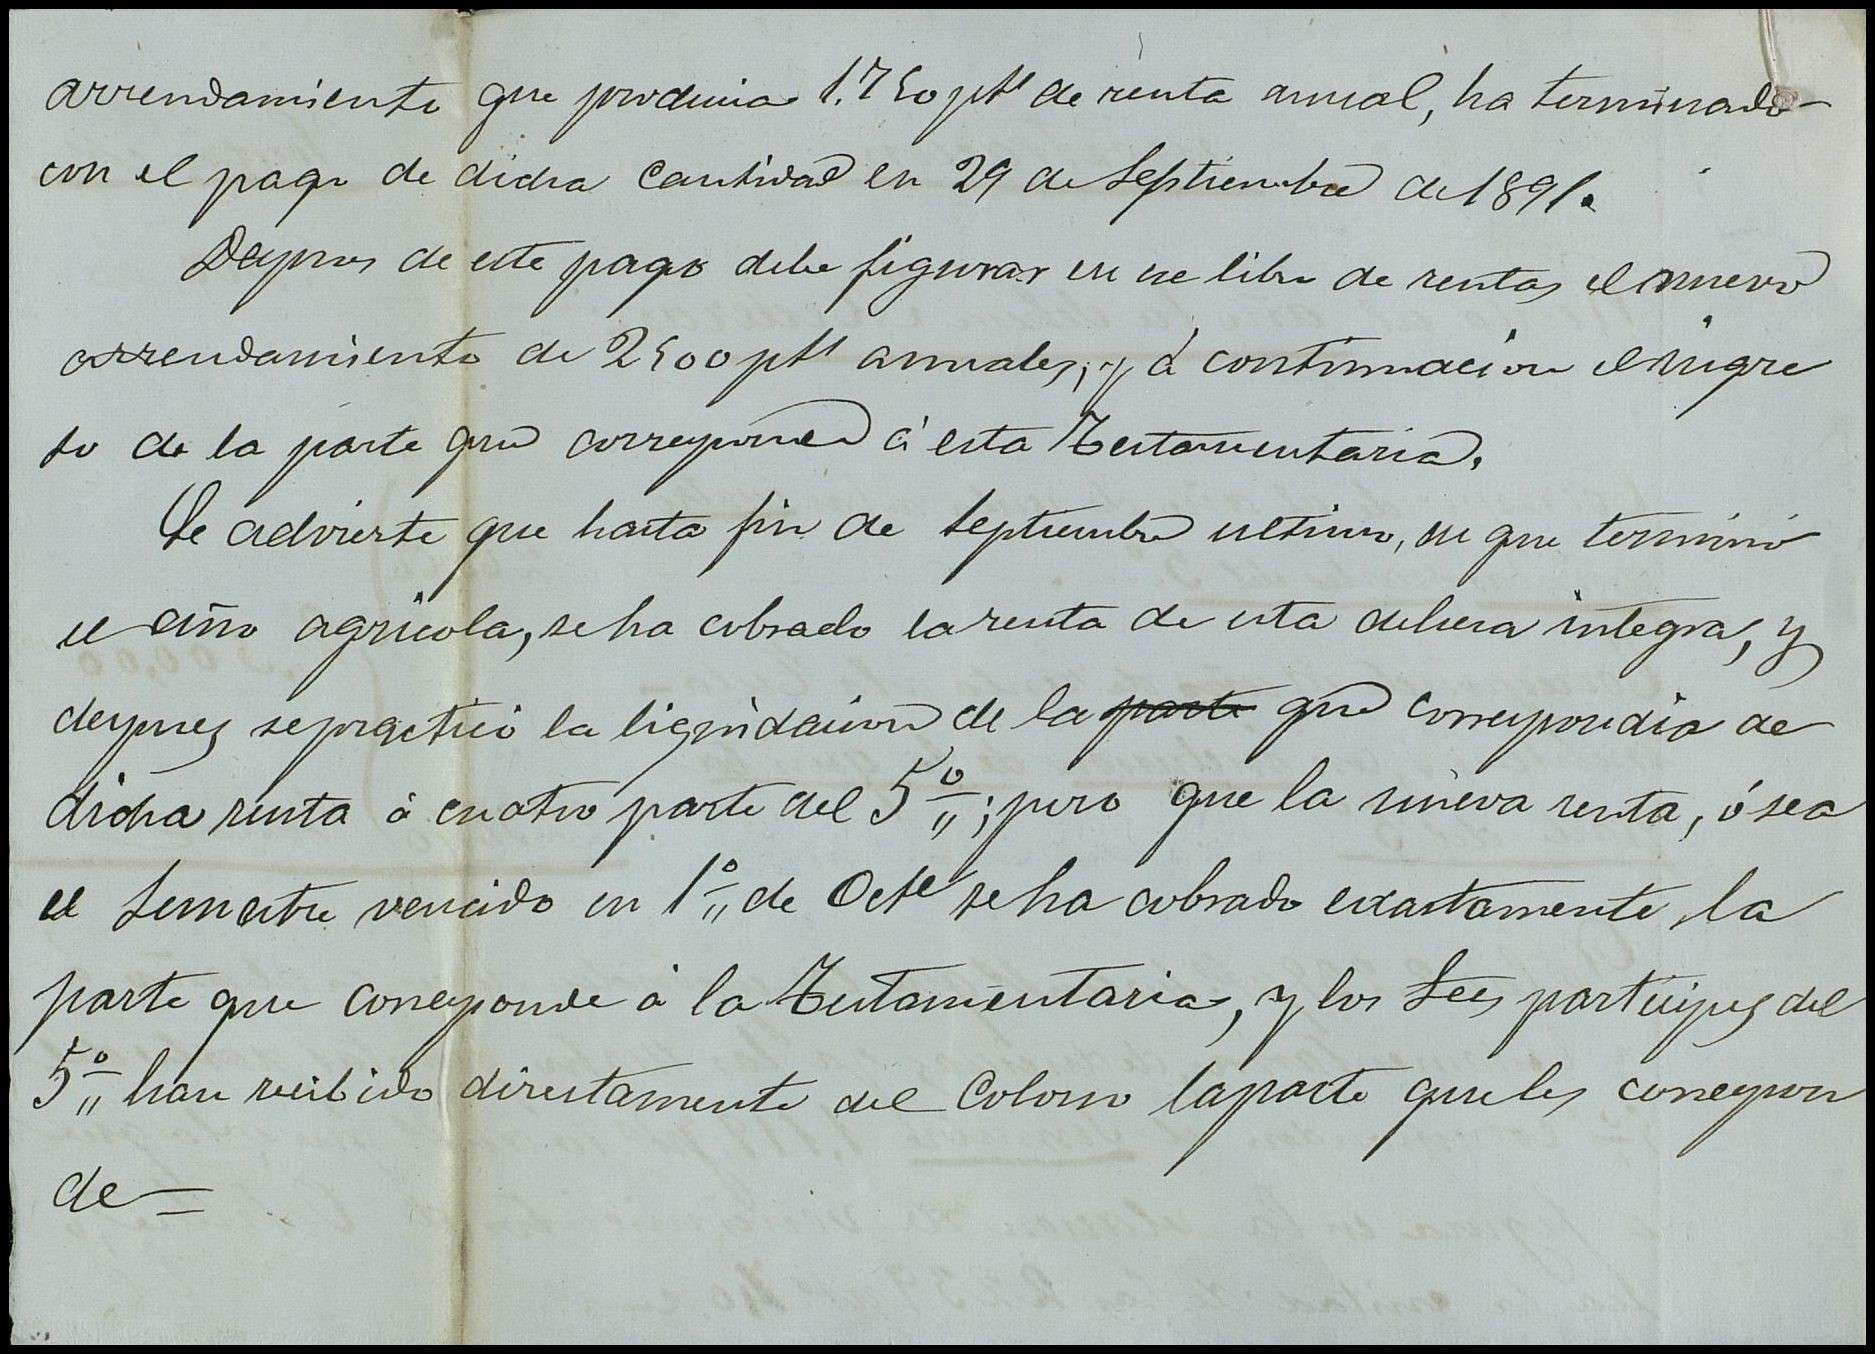 arrendamiento que producia 1.750 pts de renta anual, ha terminado
con el pago de dicha cantidad en 29 de Septiembre de 1891.
Despues de este pago debe figurar en ese libro de rentas el nuevo
arrendamiento de 2500 pts anuales, y á continuacion el ingre
so de la parte que corresponde á esta Testamentaria.
Se advierte que hasta fin de Septiembre ultimo, en que terminó
el año agricola, se ha cobrado la renta de esta dehesa integra, y
despues se practicó la liquidacion de la parte que correspondia de
dicha renta á cuatro parte del 5º; pero que la nueva renta, ó sea
el Semestre vencido en 1º de Octe se ha cobrado exactamente la
parte que corresponde á la Testamentaria, y los Sres participes del
5º han recibido directamente del Colono la parte que les correspon
de